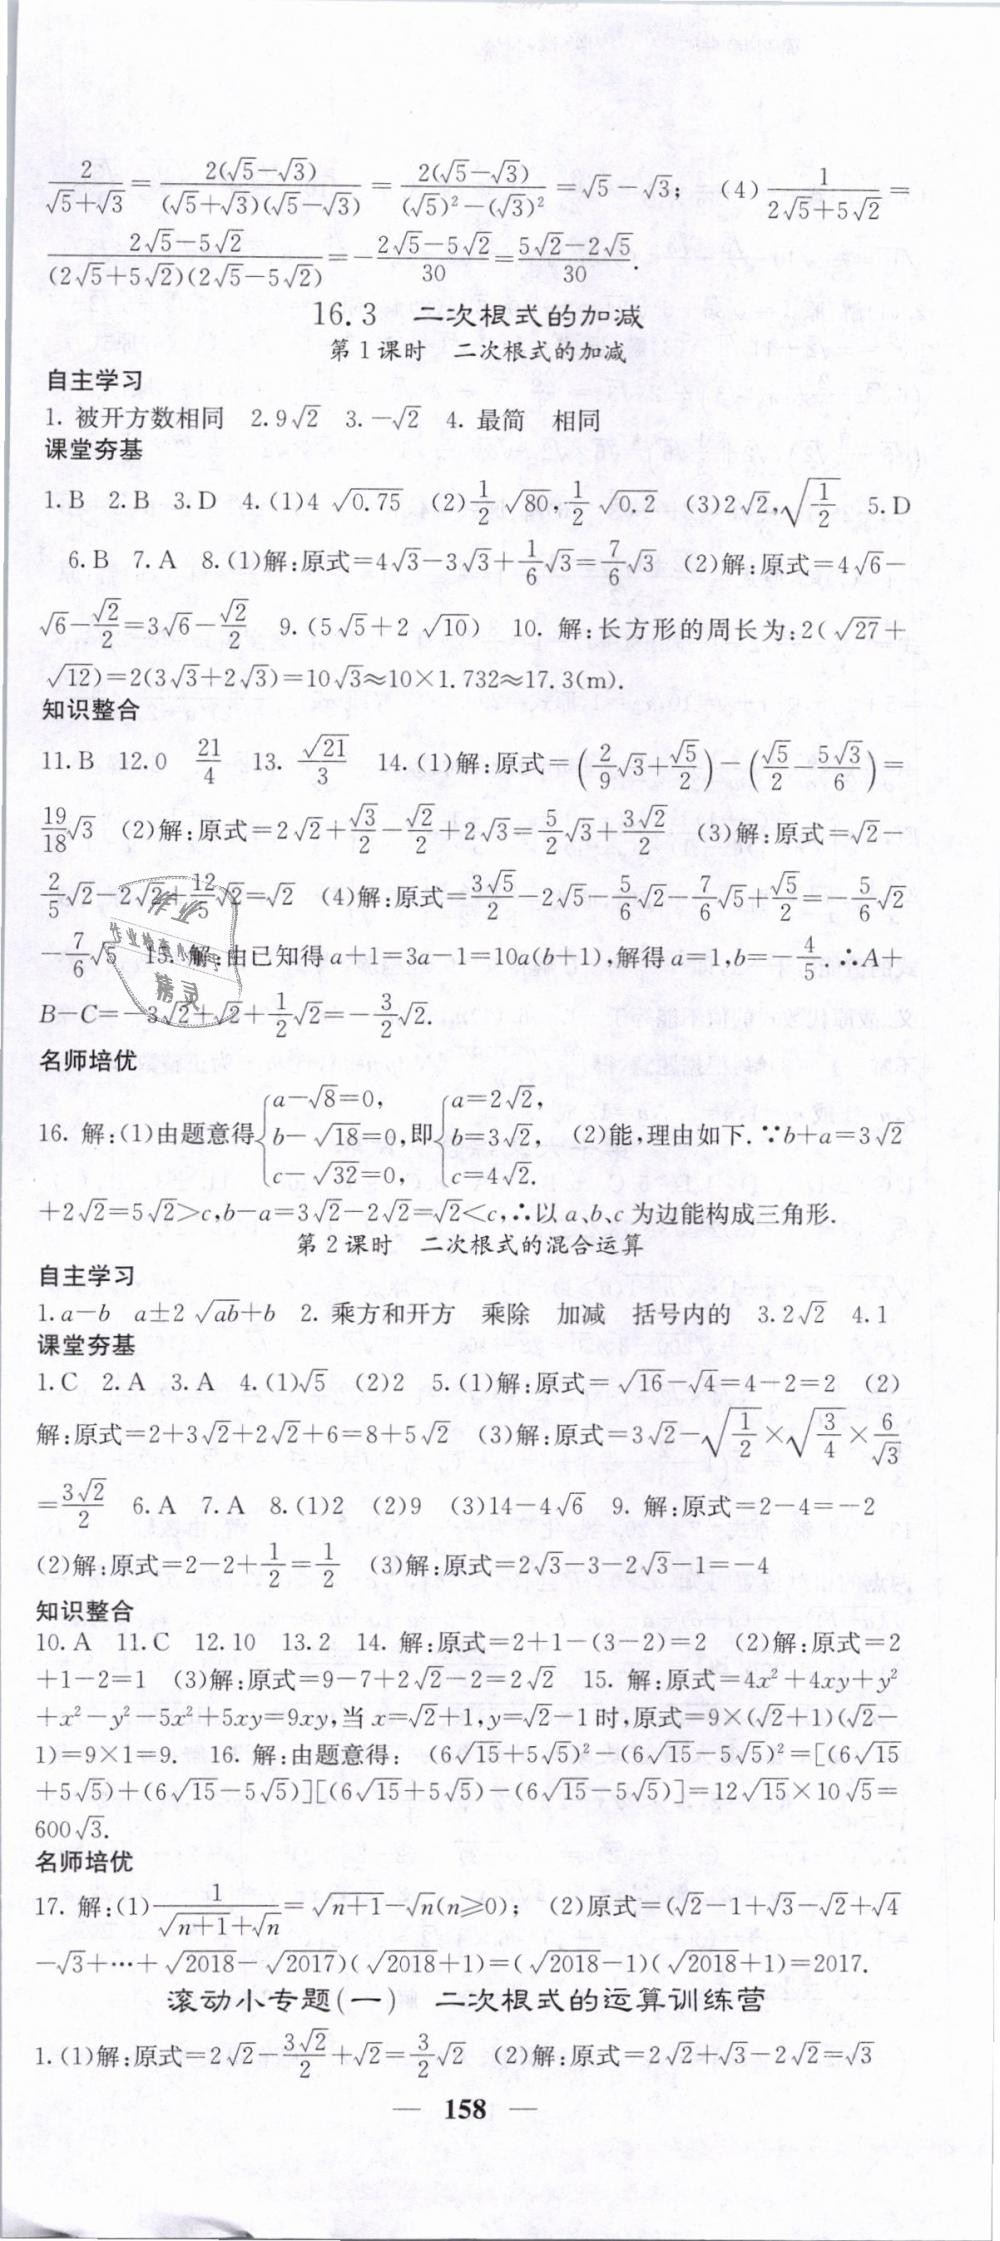 2/(√5+√3)=2(√5-√3)/((√5+√3)(√5-√3))=2(√5-√3)/((√5)²-(√3)²)=√5-√3; (4)1/(2√5+5√2)=
(2√5-5√2)/((2√5+5√2)(2√5-5√2))=-(2√5-5√2)/30=(5√2-2√5)/30.
16.3 二次根式的加减
第1课时 二次根式的加减
自主学习
1. 被开方数相同 2.9√2 3.-√2 4. 最简 相同
课堂夯基
1.B 2.B 3.D 4.(1)4 √0.75 (2)1/2√80,1/2√0.2 (3)2√2,√(1/2) 5.D
6.B 7.A 8.(1)解:原式=4√3-3√3+1/6√3=7/6√3 (2)解:原式=4√6-
√6-√2/2=3√6-√2/2 9.(5√5+2√10) 10. 解:长方形的周长为:2(√27+
√12)=2(3√3+2√3)=10√3≈10×1.732≈17.3(m).
知识整合
11.B 12.0 21/4 13. √21/3 14.(1)解:原式=(2/9√3+√5/2)-(√5/2-5√3/6)=
19/18√3 (2)解:原式=2√2+√3/2-√2/2+2√3=5/2√3+3√2/2 (3)解:原式=√2-
2/5√2-2√2+12/5√2=√2 (4)解:原式=3√5/2-2√5-5/6√2-7/6√5+√5/2=-5/6√2
-7/6√5 15. 解:由已知得a+1=3a-1=10a(b+1),解得a=1,b=-4/5.∴A+
B-C=-3√2+√2+1/2√2=-3/2√2.
名师培优
16. 解:(1)由题意得{a-√8=0, b-√18=0, c-√32=0,即{a=2√2, b=3√2, c=4√2. (2)能,理由如下.∵b+a=3√2
+2√2=5√2>c,b-a=3√2-2√2=√2<c,∴以a、b、c为边能构成三角形.
第2课时 二次根式的混合运算
自主学习
1.a-b a±2√ab+b 2. 乘方和开方 乘除 加减 括号内的 3.2√2 4.1
课堂夯基
1.C 2.A 3.A 4.(1)√5 (2)2 5.(1)解:原式=√16-√4=4-2=2 (2)
解:原式=2+3√2+2√2+6=8+5√2 (3)解:原式=3√2-√(1/2)×√(3/4)×6/√3
=3√2/2 6.A 7.A 8.(1)2 (2)9 (3)14-4√6 9. 解:原式=2-4=-2
(2)解:原式=2-2+1/2=1/2 (3)解:原式=2√3-3-2√3-1=-4
知识整合
10.A 11.C 12.10 13.2 14. 解:原式=2+1-(3-2)=2 (2)解:原式=2
+1-2=1 (3)解:原式=9-7+2√2-2=2√2 15. 解:原式=4x²+4xy+y²
+x²-y²-5x²+5xy=9xy,当x=√2+1,y=√2-1时,原式=9×(√2+1)(√2-
1)=9×1=9. 16. 解:由题意得: (6√15+5√5)²-(6√15-5√5)²=[(6√15
+5√5)+(6√15-5√5)][(6√15+5√5)-(6√15-5√5)]=12√15×10√5=
600√3.
名师培优
17. 解:(1)1/(√(n+1)+√n)=√(n+1)-√n(n≥0); (2)原式=(√2-1+√3-√2+√4
-√3+…+√2018-√2017)(√2018+1)=(√2018-1)(√2018+1)=2017.
滚动小专题(一) 二次根式的运算训练营
1.(1)解:原式=2√2-3√2/2+√2=3/2√2 (2)解:原式=2√2+√3-2√2=√3
— 158 —